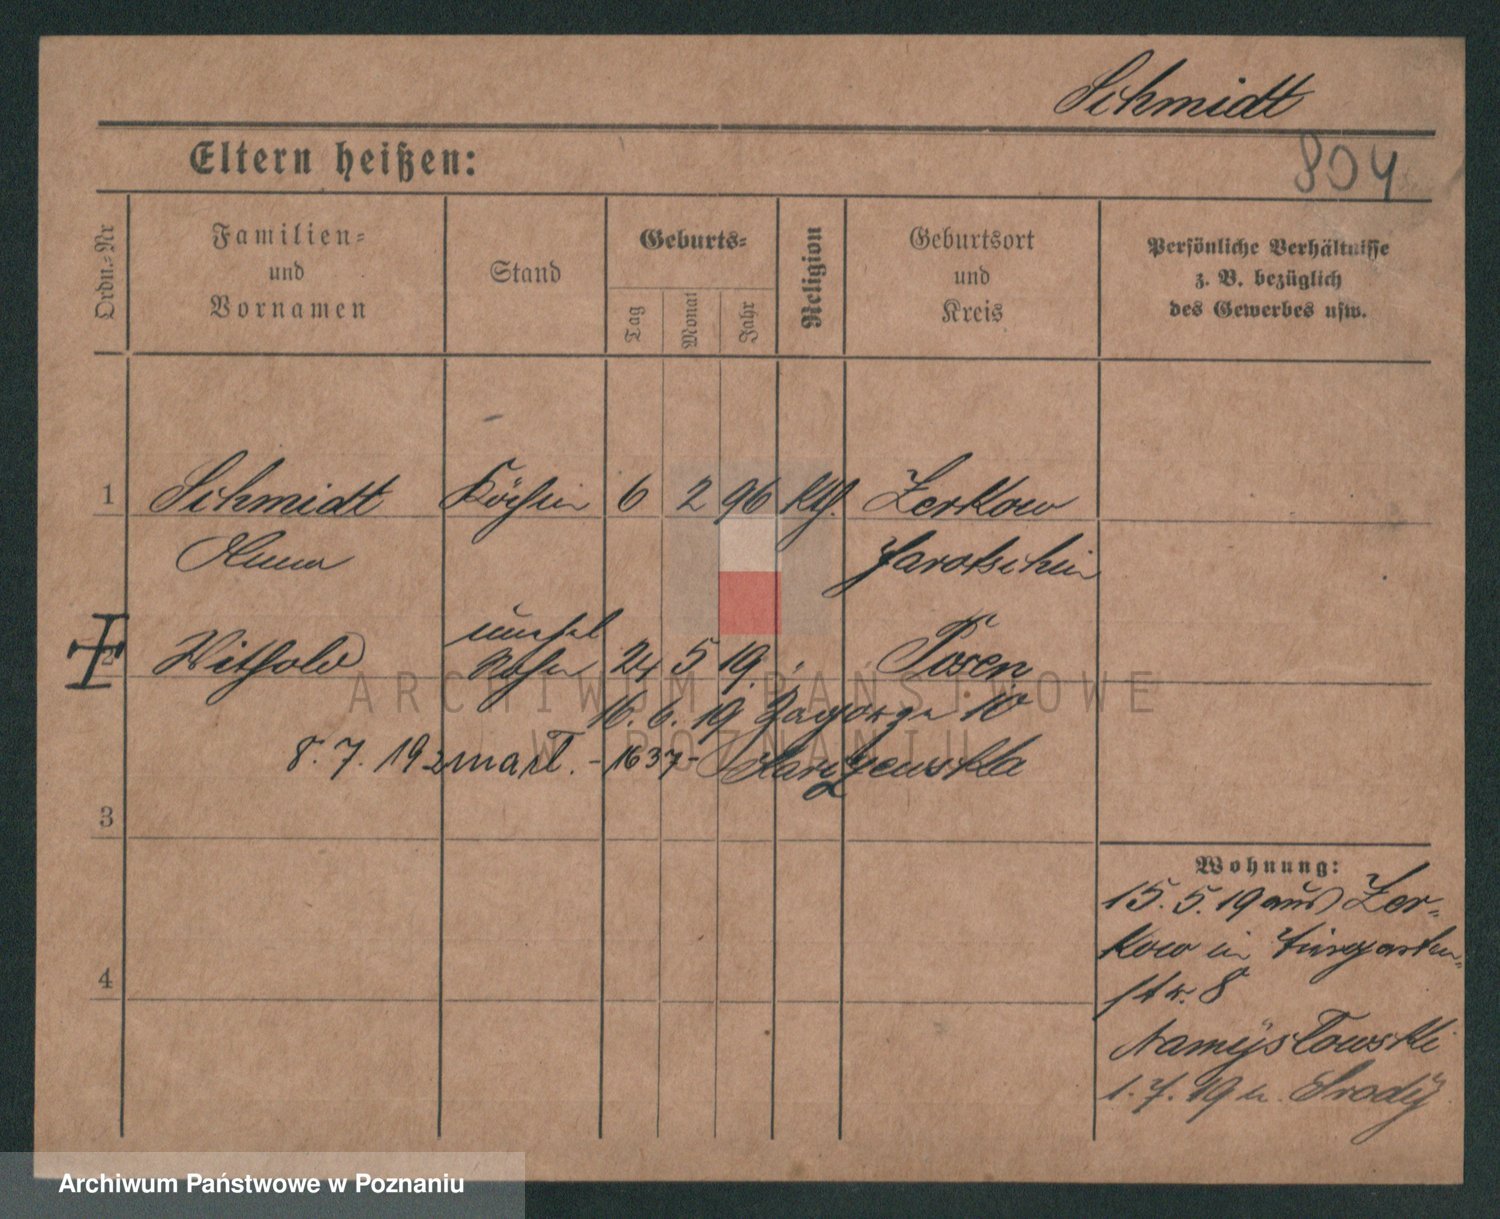 Schmidt
804
Eltern heißen:
Ordn.-Nr
Familien-
und
Vornamen
Stand
Geburts-
Tag
Monat
Jahr
Religion
Geburtsort
und
Kreis
Persönliche Verhältnisse
z. B. bezüglich
des Gewerbes usw.
1 Schmidt Köchin 6 2 96 kth. Zerkow
Jarotschin
2 Withold unehel 24 5 19. Posen
16. 6. 19 Zagorze 10
8. 7. 19 -1637-
3
4
Wohnung:
15. 5. 19 aus Zer-
kow in Tiergarten-
str. 8
Namysłowski
1. 7. 19 n. Srody
ARCHIWUM PAŃSTWOWE
W POZNANIU
Archiwum Państwowe w Poznaniu